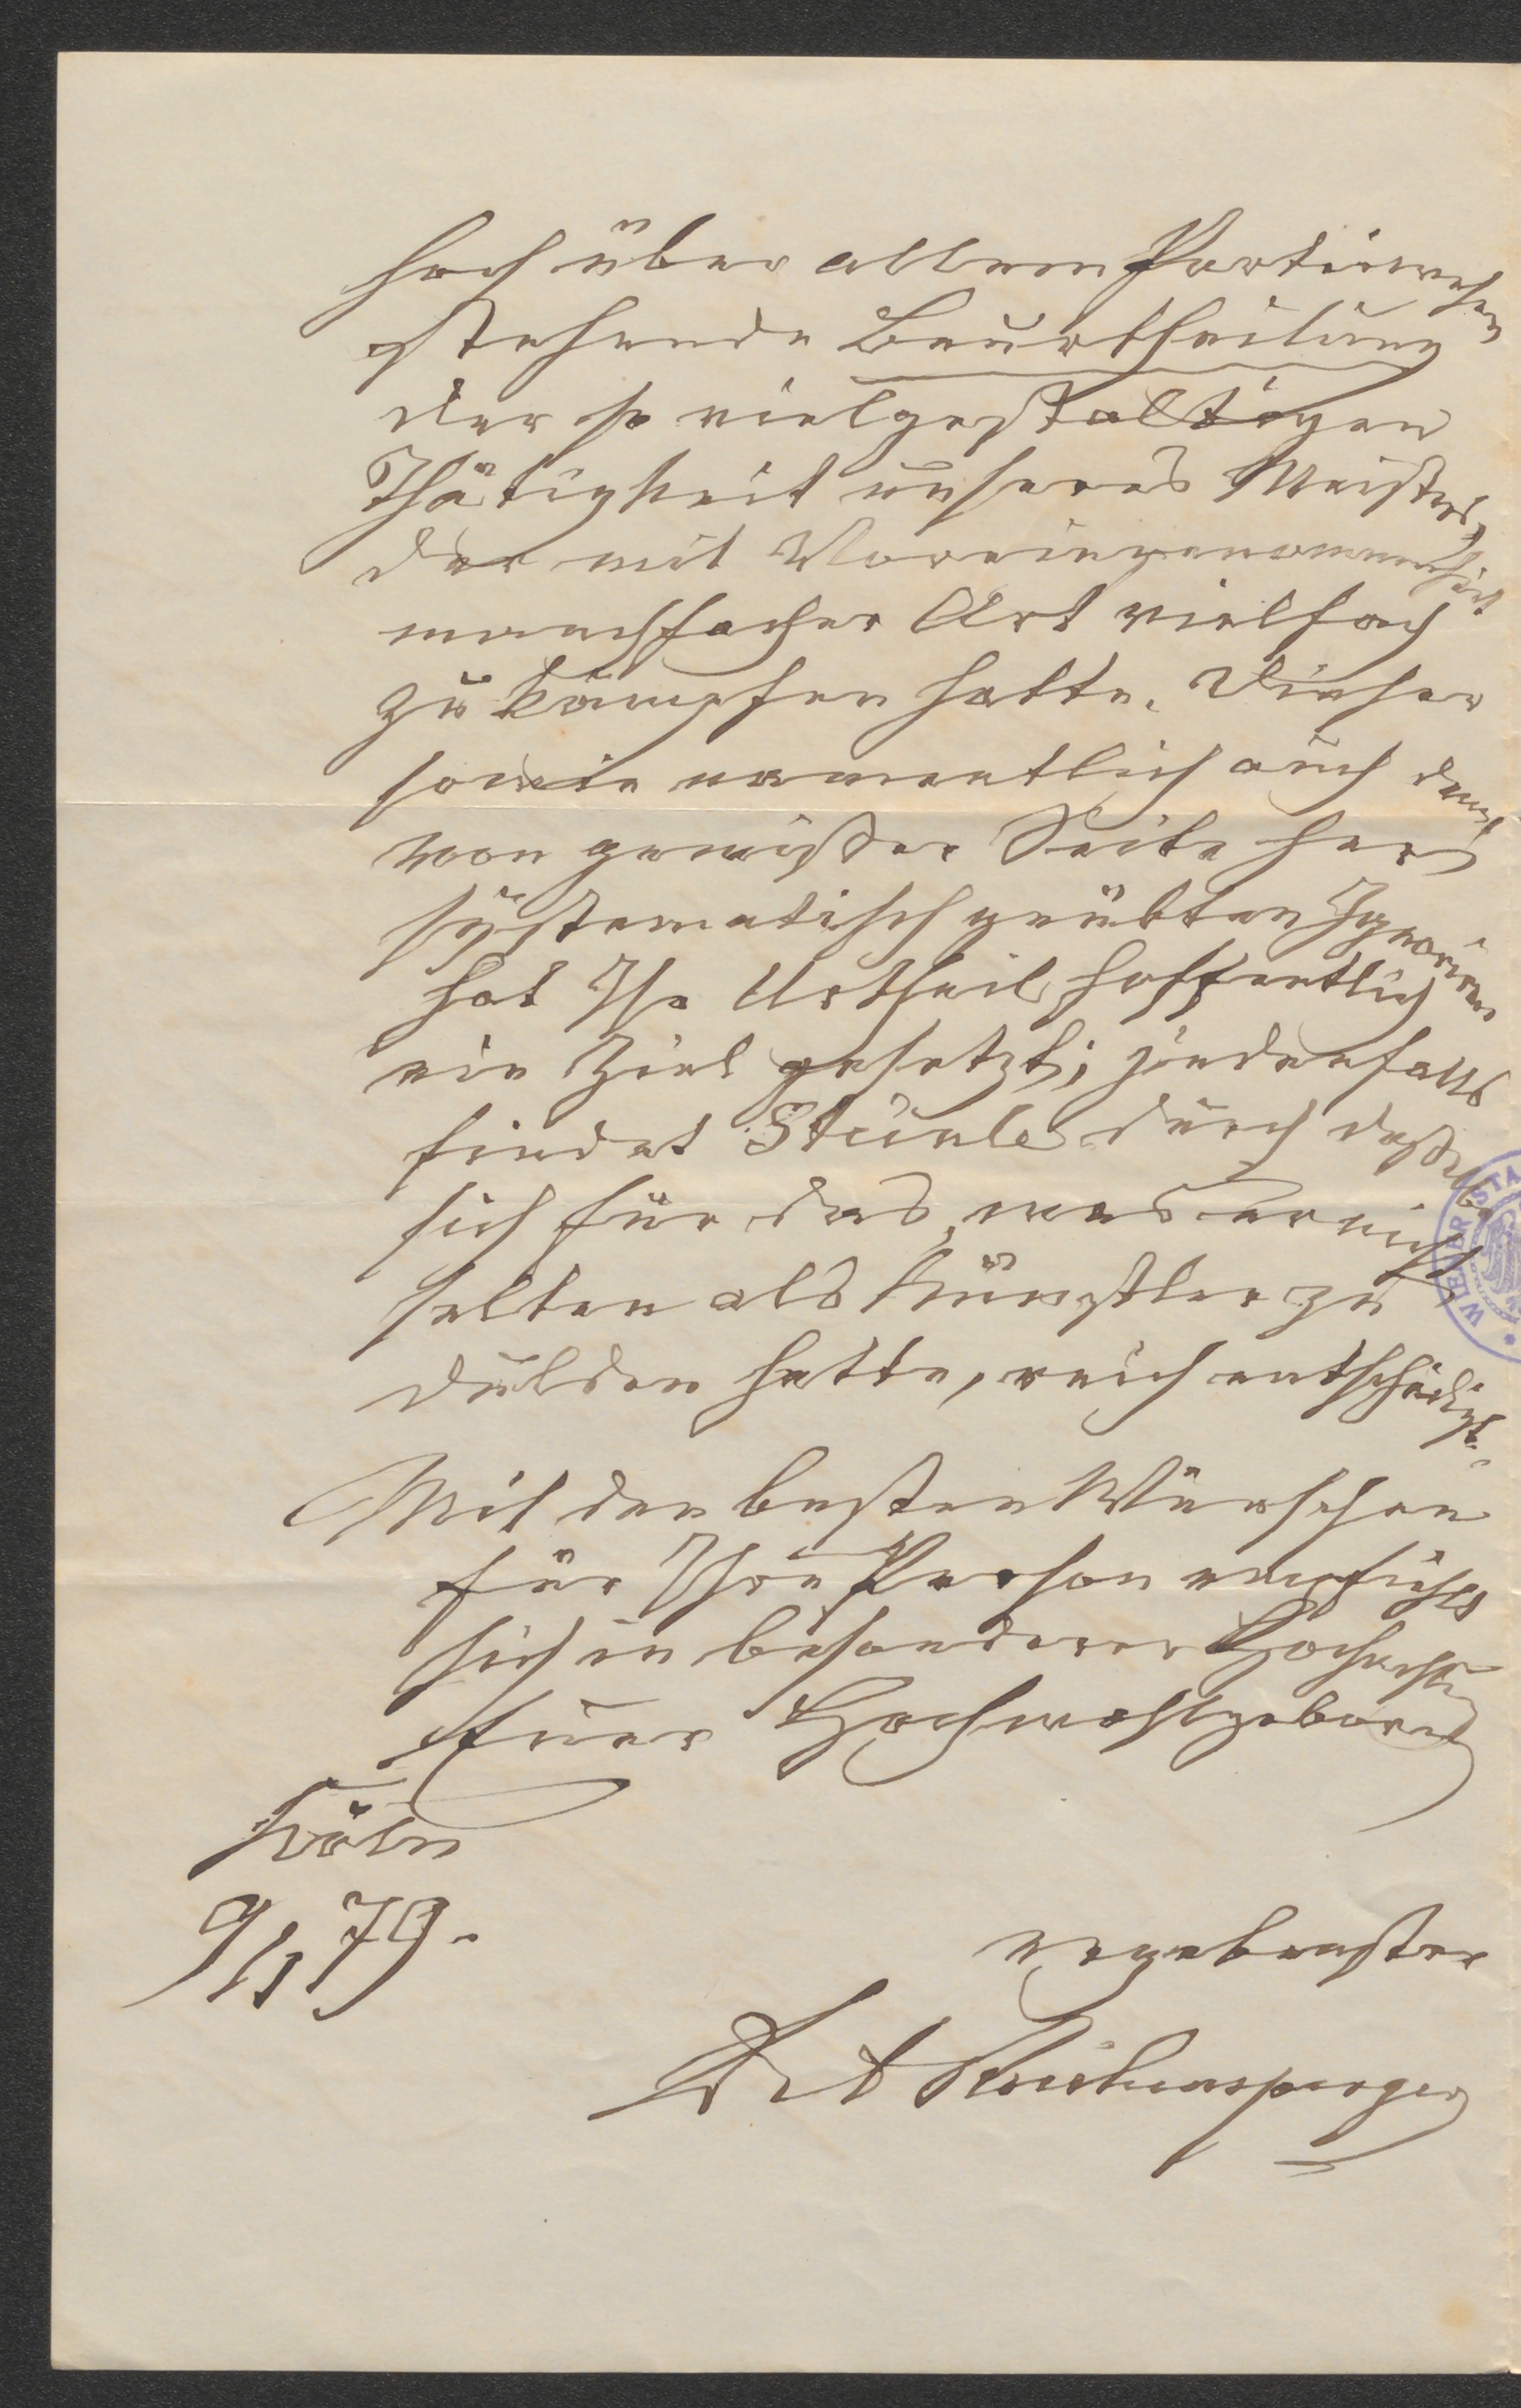 hoch über allem Parteiwesen
stehende Beurtheilung
der so vielgestaltigen
Thätigkeit unseres Meisters,
der mit Voreingenommenheit
manchfacher Art vielfach
zu kämpfen hatte. Dieser
sowie namentlich auch dem,
von gewisser Seite her
systematisch geübten Ignoriren
hat Ihr Urtheil hoffentlich
ein Ziel gesetzt; jedenfalls
findet Steinle durch dasselbe
sich für das, was er nicht
selten als Künstler zu
dulden hatte, reich entschädigt.
Mit den besten Wünschen
für Ihre Person empfiehlt
sich in besonderer Hochachtung
Euer Hochwohlgeboren
Köln
9/1 79.
ergebenster
Dr A Reichensperger
WIENER STA